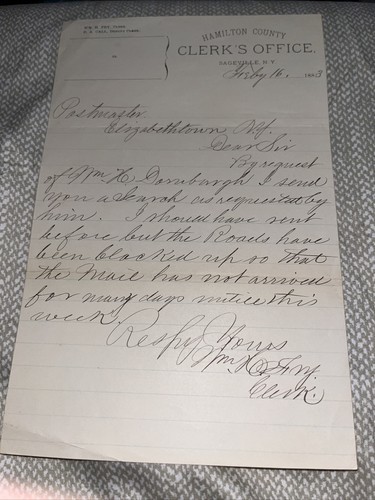 WM H. FRY, CLERK.
HAMILTON COUNTY
CLERK'S OFFICE.
SAGEVILLE, N.Y.
Feby 16, 1883
Postmaster
Elizabethtown NY.
Dear Sir
By request
of Wm H Dornburgh I send
you a Search as requested by
him. I should have sent
before but the Roads have
been blocked up so that
the Mail has not arrived
for many days untill this
week.
Respy Yours
Wm H Fry,
Clerk.